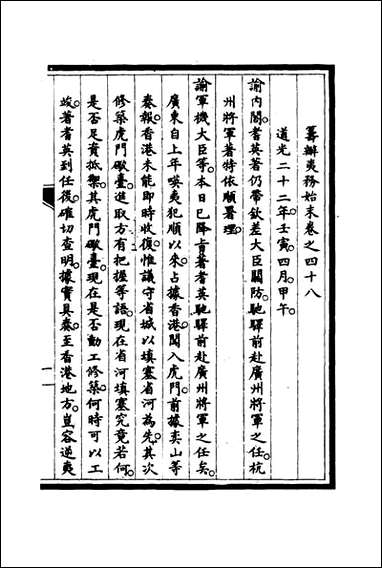 籌辦夷務始末卷之四十八
道光二十二年。壬寅。四月。甲午。
諭內閣。耆英著仍帶欽差大臣關防。馳驛前赴廣州將軍之任。杭
州將軍著特依順署理。
諭軍機大臣等。本日已降旨。著耆英馳驛前赴廣州將軍之任矣。
廣東自上年嘆夷犯順以來。占據香港。闖入虎門。前據奕山等
奏報。香港未能即時收復。惟議守省城。以填塞省河為先。其次
修築虎門礮臺。進取方有把握等語。現在省河填塞。究竟若何。
是否足資抵禦。其虎門礮臺。現在是否動工修築。何時可以工
竣。著耆英到任後。確切查明。據實具奏。至香港地方。豈容逆夷